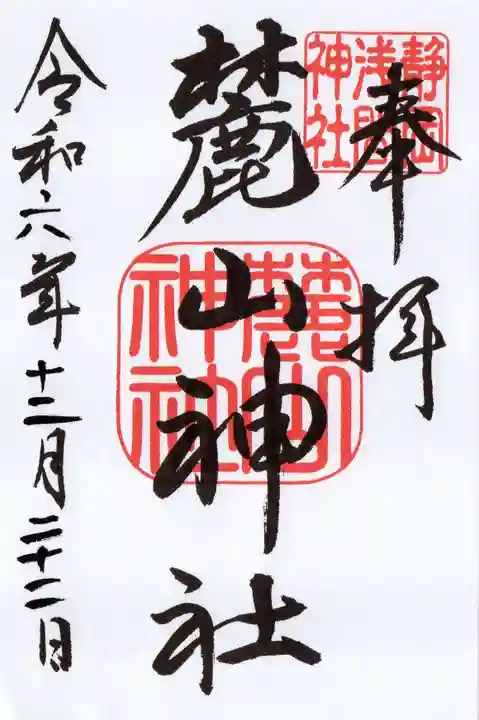 奉拝
静岡
浅間
神社
麓山神社
麓山
神社
令和六年十二月二十二日